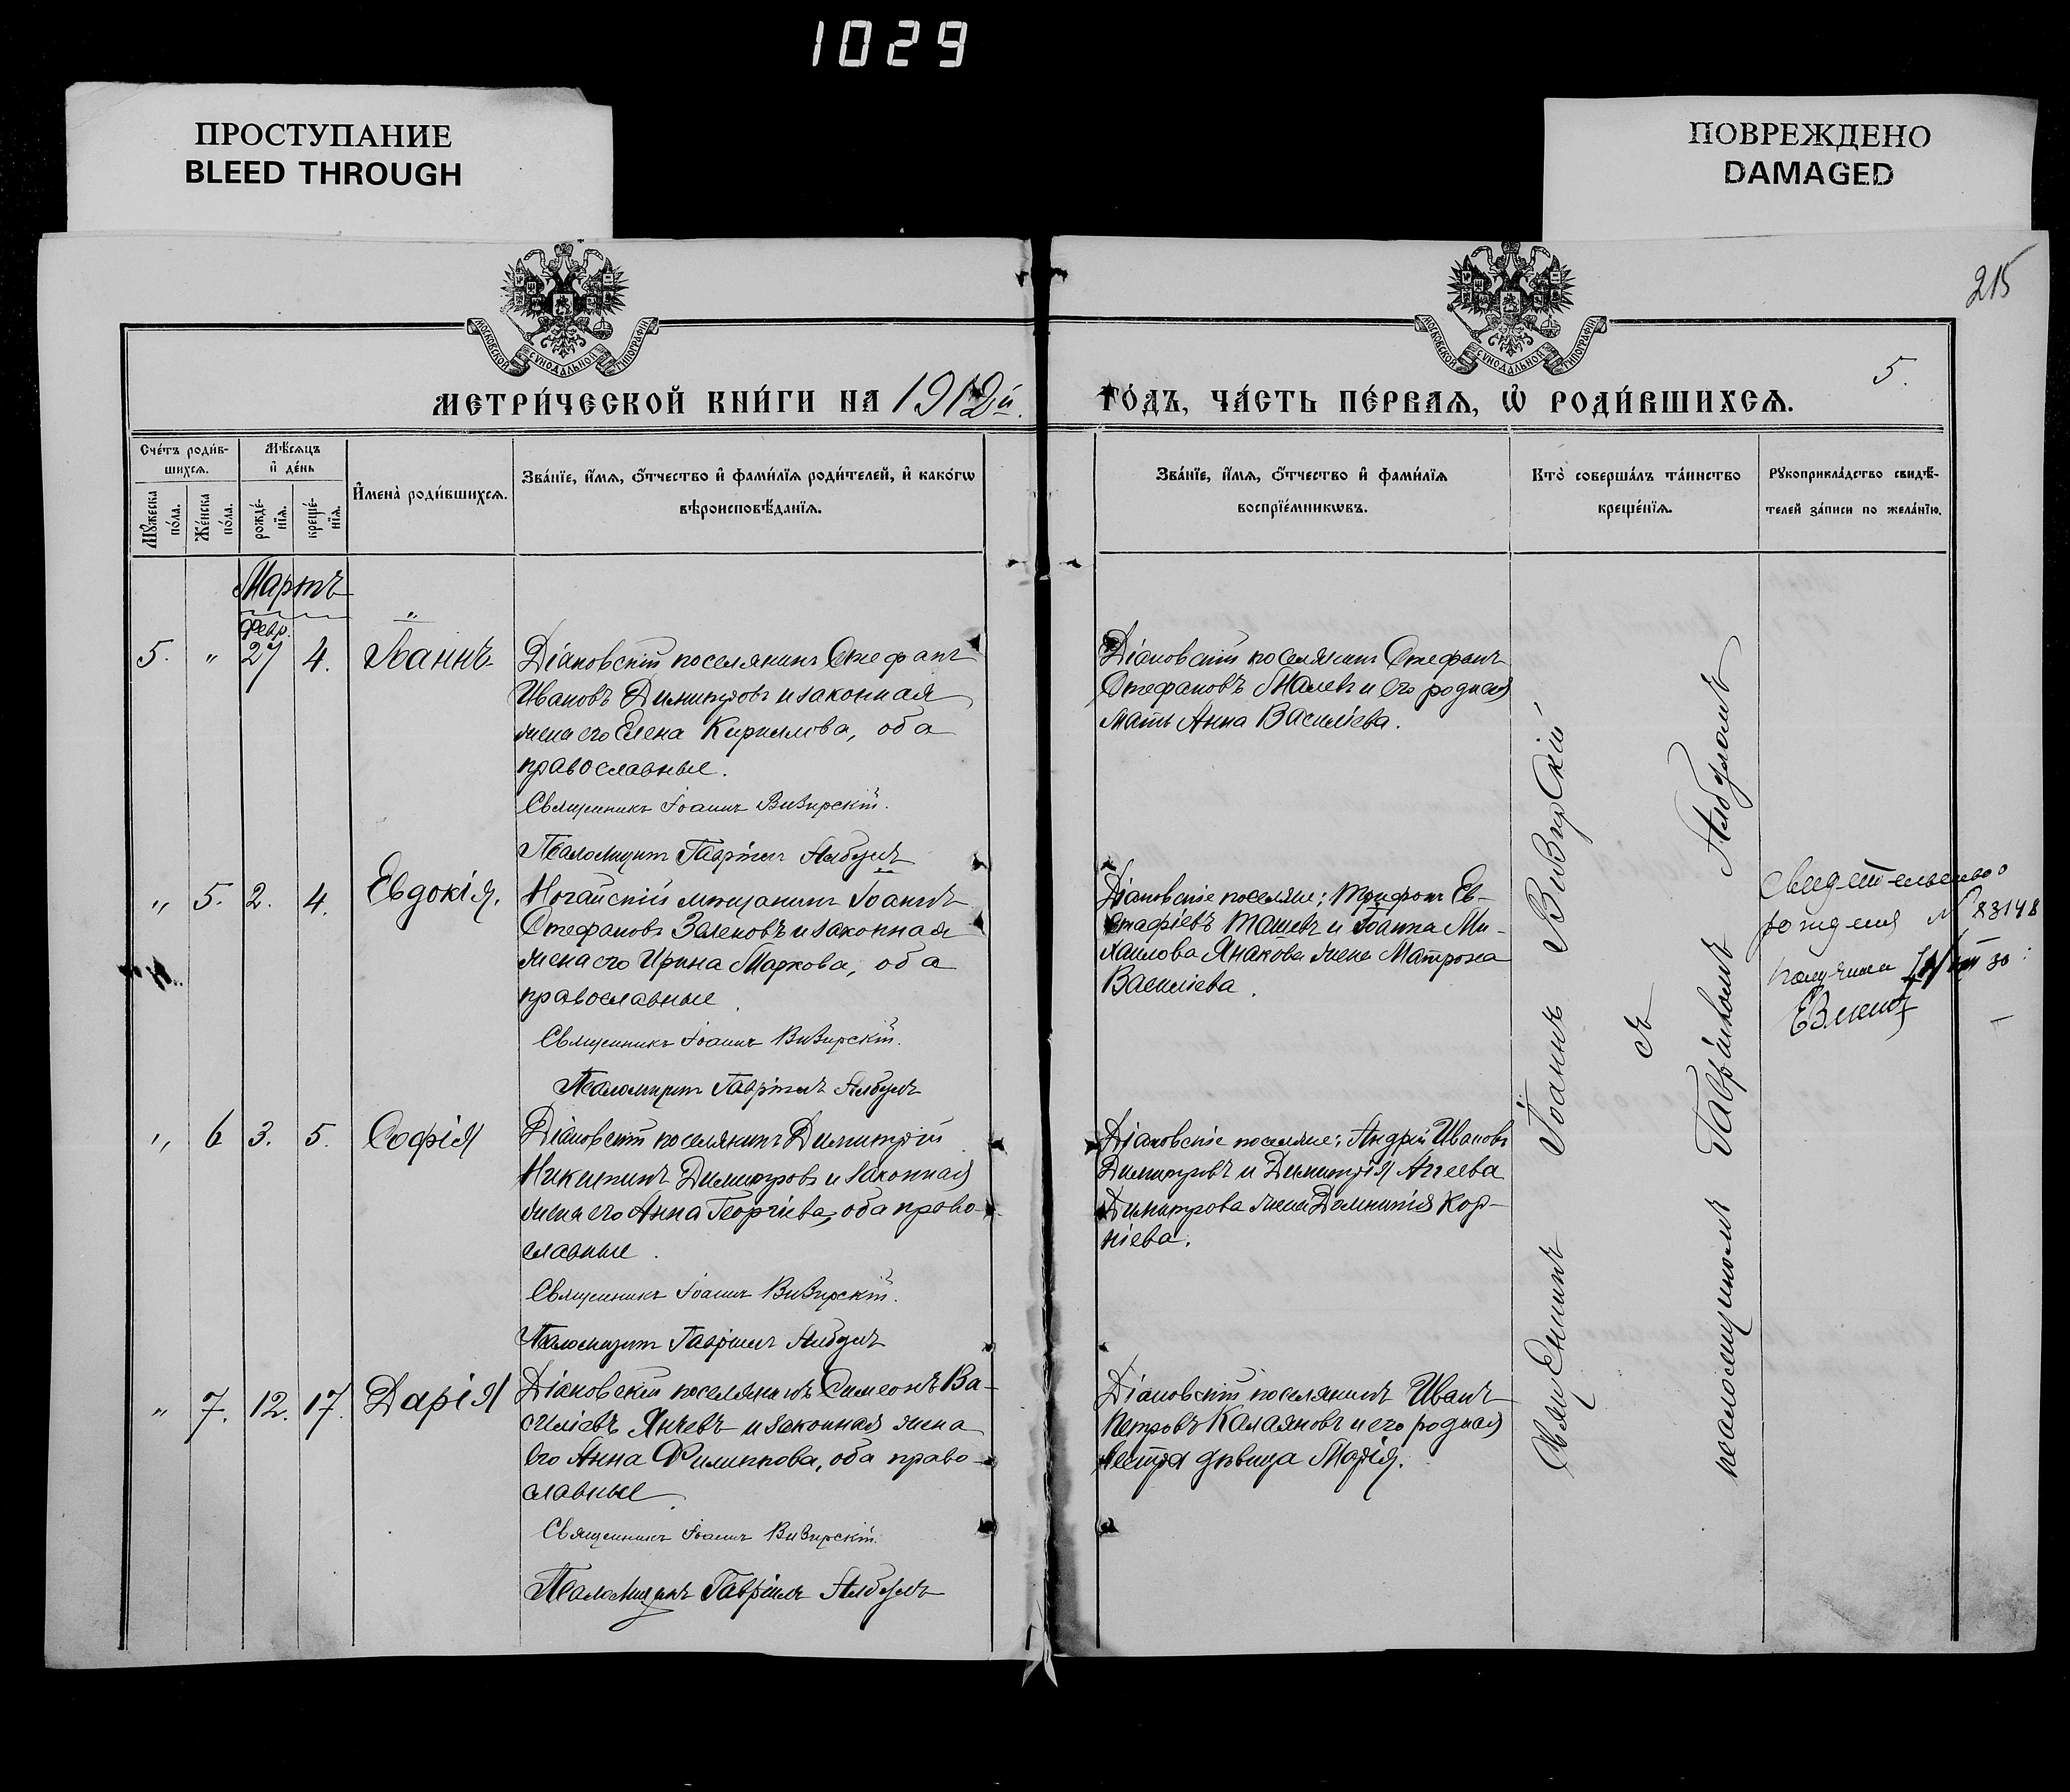 1029
ПРОСТУПАНИЕ
BLEED THROUGH
ПОВРЕЖДЕНО
DAMAGED
215
5.
МОСКОВСКОЙ СѴНОДАЛЬНОЙ ТИПОГРАФІИ
МОСКОВСКОЙ СѴНОДАЛЬНОЙ ТИПОГРАФІИ
МЕТРИ́ЧЕСКОЙ КНИ́ГИ НА 1912й
ГО́ДЪ, ЧА́СТЬ ПЕ́РВАѦ, Ѡ҆ РОДИ́ВШИХСѦ.
Сче́тъ роди́в-
шихсѧ.
Мꙋ́жеска
по́ла.
Же́нска
по́ла.
Мѣ́сѧцъ
и҆ де́нь
рожде́-
нїѧ.
креще́-
нїѧ.
И҆мена̀ роди́вшихсѧ.
Зва́нїе, и҆́мѧ, ѻ҆́тчество и҆ фами́лїѧ роди́телей, и҆ како́гѡ
вѣроисповѣ́данїѧ.
Зва́нїе, и҆́мѧ, ѻ҆́тчество и҆ фами́лїѧ
воспрїе́мникѡвъ.
Кто̀ соверша́лъ та́инство
креще́нїѧ.
Рꙋкоприкла́дство свидѣ́-
телей за́писи по жела́нїю.
Мартъ
Февр.
5. " 27 4. Іоаннъ
Діановскій поселянинъ Стефанъ
Ивановъ Димитровъ и законная
жена его Елена Кириллова, оба
православные.
Священникъ Іоаннъ Визирскій.
Псаломщикъ Гавріилъ Албулъ
Діановскій поселянинъ Стефанъ
Стефановъ Жалевъ и его родная
мать Анна Василіева.
" 5. 2. 4. Евдокія.
Ногайскій мѣщанинъ Іоаннъ
Стефановъ Заленовъ и законная
жена его Ирина Маркова, оба
православные.
Священникъ Іоаннъ Визирскій.
Псаломщикъ Гавріилъ Албулъ
Діановскіе поселяне: Трифонъ Ев-
стафіевъ Ташевъ и Іоанна Ми-
хаилова Янакова жена Матрона
Василіева.
Свидетельство о
рождения № 83148
получила
" 6 3. 5. Софія
Діановскій поселянинъ Димитрій
Никитинъ Димитровъ и законная
жена его Анна Георгіева, оба право-
славные.
Священникъ Іоаннъ Визирскій.
Псаломщикъ Гавріилъ Албулъ
Діановскіе поселяне: Андрей Ивановъ
Димитровъ и Димитрія Агеева
Димитрова жена Домникія Кор-
ніева.
" 7. 12. 17. Дарія
Діановскій поселянинъ Симеонъ Ва-
силіевъ Янчевъ и законная жена
его Анна Филиппова, оба право-
славные.
Священникъ Іоаннъ Визирскій.
Псаломщикъ Гавріилъ Албулъ
Діановскій поселянинъ Иванъ
Петровъ Калаяновъ и его родная
сестра дѣвица Марія.
Священникъ Іоаннъ Визирскій
съ
псаломщикомъ Гавріиломъ Албуломъ